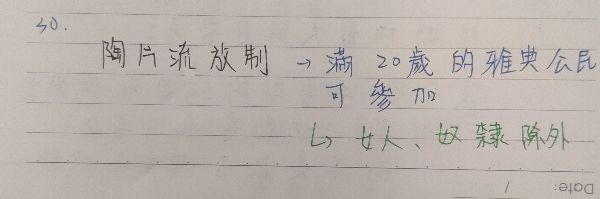 30.
陶片流放制 → 滿20歲的雅典公民
可參加
↳ 女人、奴隸除外
Date: /